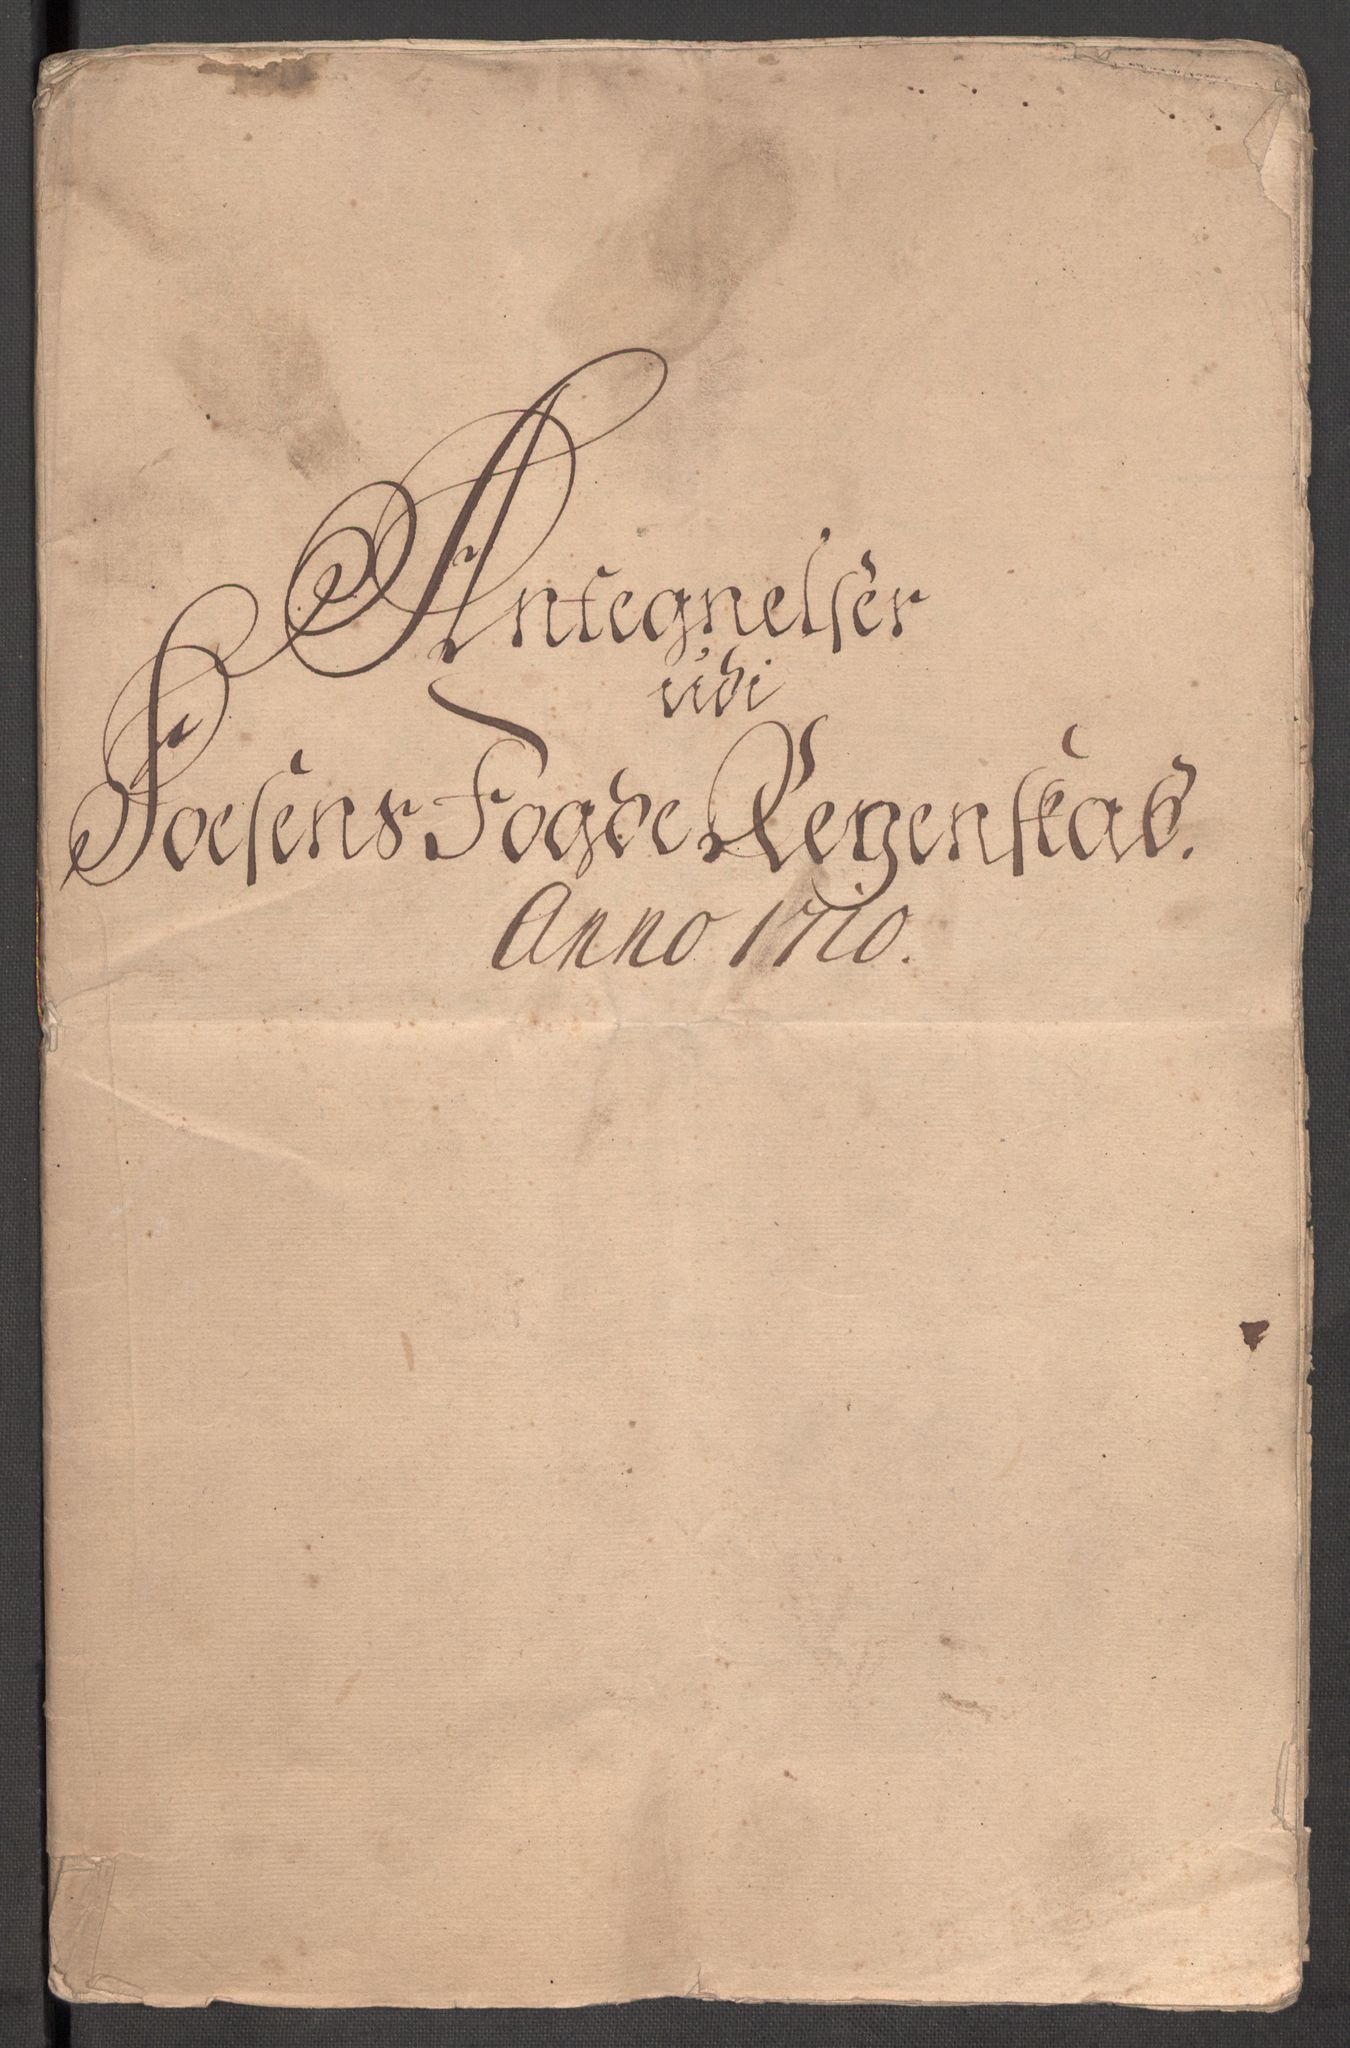 Antegnelser
udi
Foesens Fogde Regenskab.
Anno 1710.